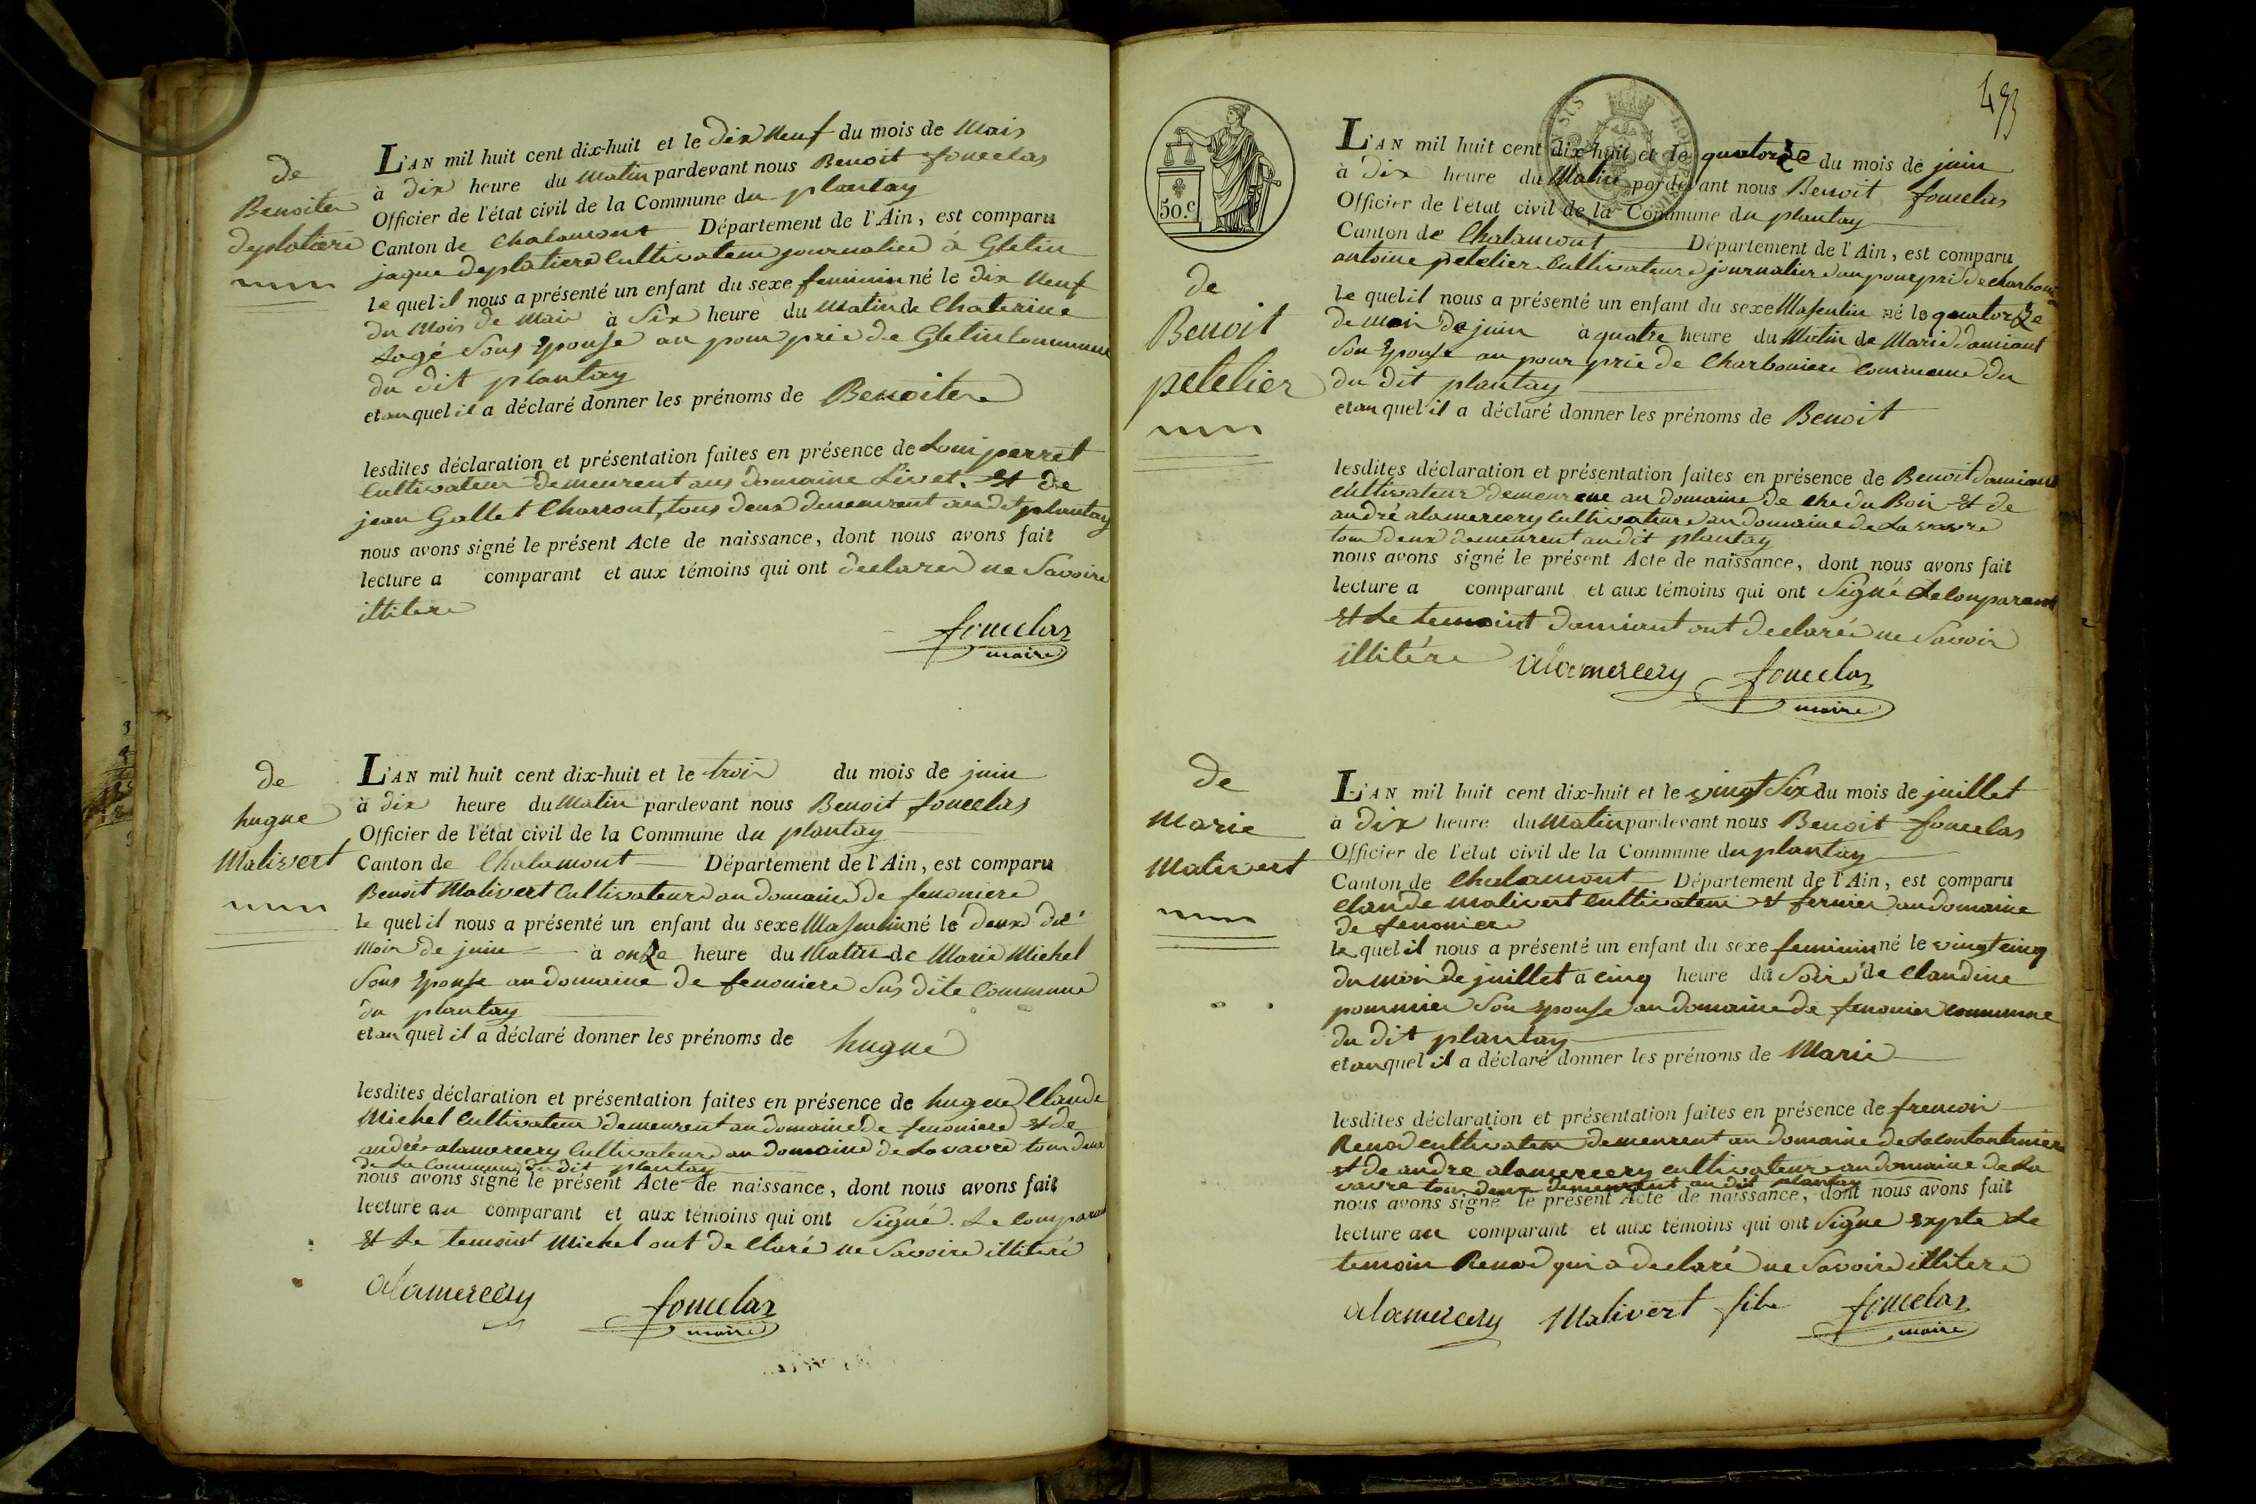 de
Benoite
deplatiere
L'AN mil huit cent dix-huit et le dix Neuf du mois de Mais
à dix heure du Matin pardevant nous Benoit fouselas
Officier de l'état civil de la Commune du plantay
Canton de Chalamont Département de l'Ain, est comparu
jaque deplatiere Cultivateur journalier à Gletin
le quel il nous a présenté un enfant du sexe feminin né le dix Neuf
du Mois de Mai à Six heure du Matin de Chaterine
Logé Sons Epouse au pour prie de Gletin Commune
du dit plantay
et au quel il a déclaré donner les prénoms de Benoite
lesdites déclaration et présentation faites en présence de Loui perret
Cultivateur demeurent aus domaine Livet. Et de
jean Gallet Charront, tous deux demeurent au dit plantay
nous avons signé le présent Acte de naissance, dont nous avons fait
lecture a comparant et aux témoins qui ont declarer ne Savoire
illitere
fouselas
maire
de
hugue
Malivert
L'AN mil huit cent dix-huit et le troi du mois de juin
à dix heure du Matin pardevant nous Benoit fouselas
Officier de l'état civil de la Commune du plantay
Canton de Chalamont Département de l'Ain, est comparu
Benoit Malivert Cultivateur au domaine de fenoniere
le quel il nous a présenté un enfant du sexe Masculin né le deux du
Mois de juin à onze heure du Matin de Marie Michel
Sons Epouse au domaine de fenoniere Sus dite Commune
du plantay
et au quel il a déclaré donner les prénoms de hugue
lesdites déclaration et présentation faites en présence de hugue Claude
Michel Cultivateur demeurent au domaine de fenoniere Et de
andré alamercery Cultivateur au domaine de La vavre tous deux
de La Commune du dit plantay
nous avons signé le présent Acte de naissance, dont nous avons fait
lecture au comparant et aux témoins qui ont Signé. Le Comparant
Et Le temoint Michel ont declaré ne Savoire illiteré
alamercery fouselas
maire
493
50.c
de
Benoit
peletier
L'AN mil huit cent dix-huit et le quatorze du mois de juin
à dix heure du Matin pardevant nous Benoit fouselas
Officier de l'état civil de la Commune du plantay
Canton de Chalamont Département de l'Ain, est comparu
antoine peletier Cultivateur journalier au pourpri de charboniere
le quel il nous a présenté un enfant du sexe Masculin né le quatorze
de moi de juin à quatre heure du Matin de Marie damiant
Son Epouse au pour prie de Charboniere Commune du
du dit plantay
et au quel il a déclaré donner les prénoms de Benoit
lesdites déclaration et présentation faites en présence de Benoit damiant
Cultivateur demeurent au domaine de che du Boi Et de
andré alamercery Cultivateur au domaine de La vavre
tous deux demeurent au dit plantay
nous avons signé le présent Acte de naissance, dont nous avons fait
lecture a comparant et aux témoins qui ont Signé Le Comparant
Et Le temoint damiant ont declaré ne Savoir
illitére alamercery fouselas
maire
de
Marie
Malivert
L'AN mil huit cent dix-huit et le vingt Six du mois de juillet
à dix heure du Matin pardevant nous Benoit fouselas
Officier de l'état civil de la Commune du plantay
Canton de Chalamont Département de l'Ain, est comparu
Claude Malivert Cultivateur et fermier au domaine
de fenoniere
le quel il nous a présenté un enfant du sexe feminin né le vingt cinq
du moi de juillet à cinq heure du Soire de Claudine
pommier Son Epouse au domaine de fenonier commune
du dit plantay
et au quel il a déclaré donner les prénoms de Marie
lesdites déclaration et présentation faites en présence de francoi
Renod Cultivateur demeurent au domaine de
Et de andre alamercery Cultivateur au domaine de La
vavre tous deux demeurent au dit plantay
nous avons signé le présent Acte de naissance, dont nous avons fait
lecture au comparant et aux témoins qui ont Signe Expte Le
temoin Renod qui a declaré ne Savoire illitere
alamercery Malivert fils fouselas
maire